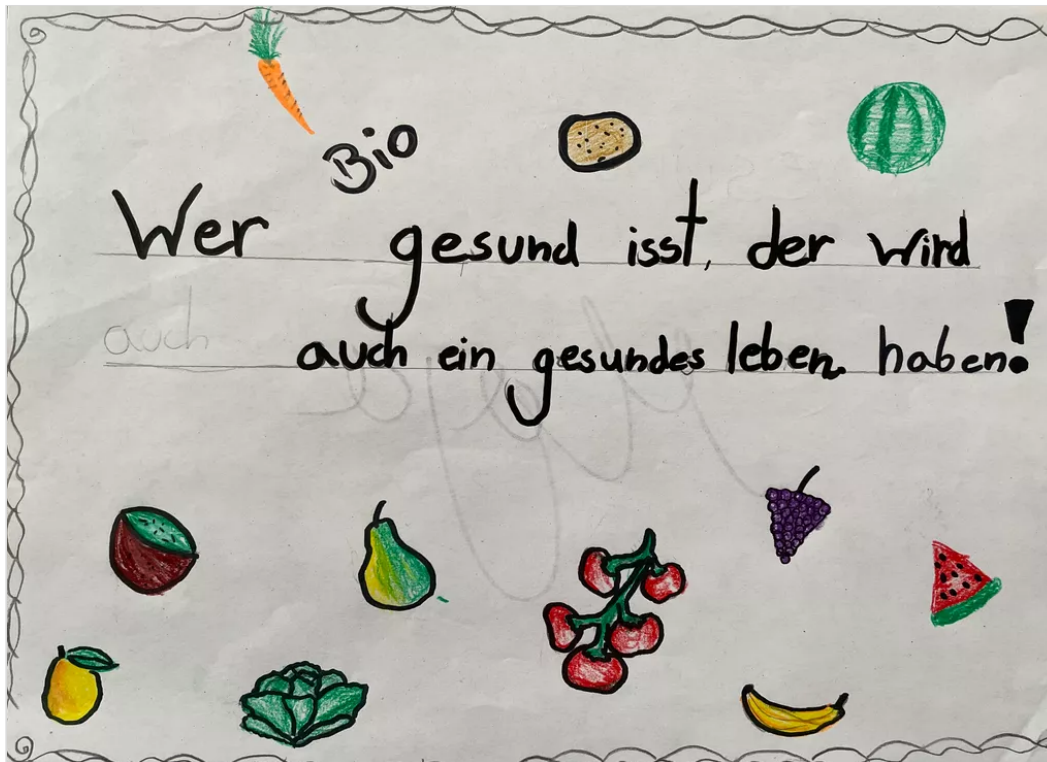 Bio
Wer gesund isst, der wird
auch
auch ein gesundes leben haben!